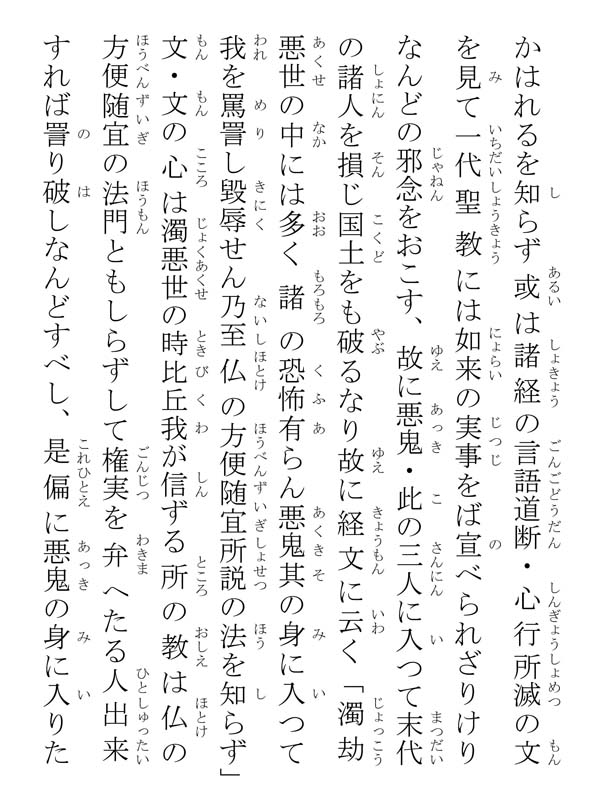 かはれるを知らず或は諸経の言語道断・心行所滅の文
を見て一代聖教には如来の実事をば宣べられざりけり
なんどの邪念をおこす、故に悪鬼・此の三人に入つて末代
の諸人を損じ国土をも破るなり故に経文に云く「濁劫
悪世の中には多く諸の恐怖有らん悪鬼其の身に入つて
我を罵詈し毀辱せん乃至仏の方便随宜所説の法を知らず」
文・文の心は濁悪世の時比丘我が信ずる所の教は仏の
方便随宜の法門ともしらずして権実を弁へたる人出来
すれば詈り破しなんどすべし、是偏に悪鬼の身に入りた